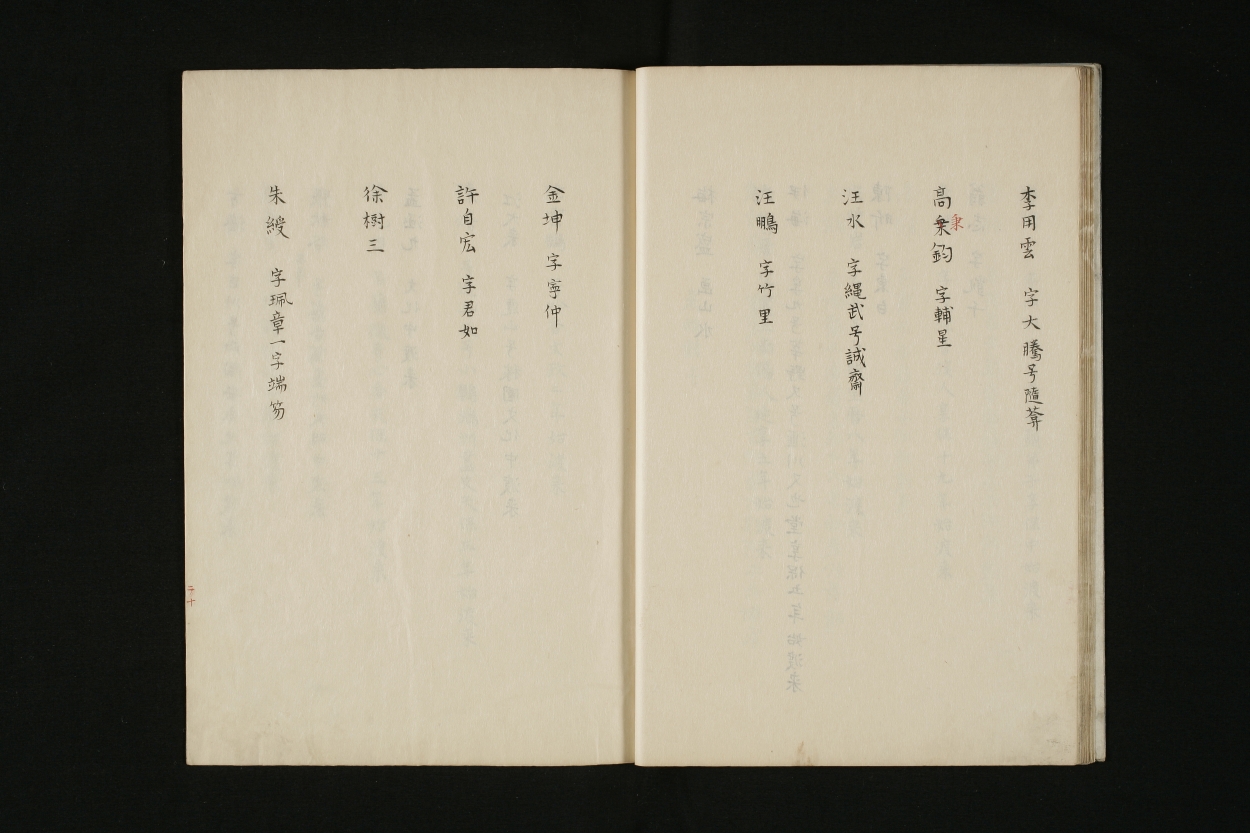 李用雲 字大騰号隨葊
高秉鈞 字輔星
秉
汪水 字縄武号誠齋
汪鵬 字竹里
金坤 字寧仲
許自宏 字君如
徐樹三
朱綬 字珮章一字端笏
二十